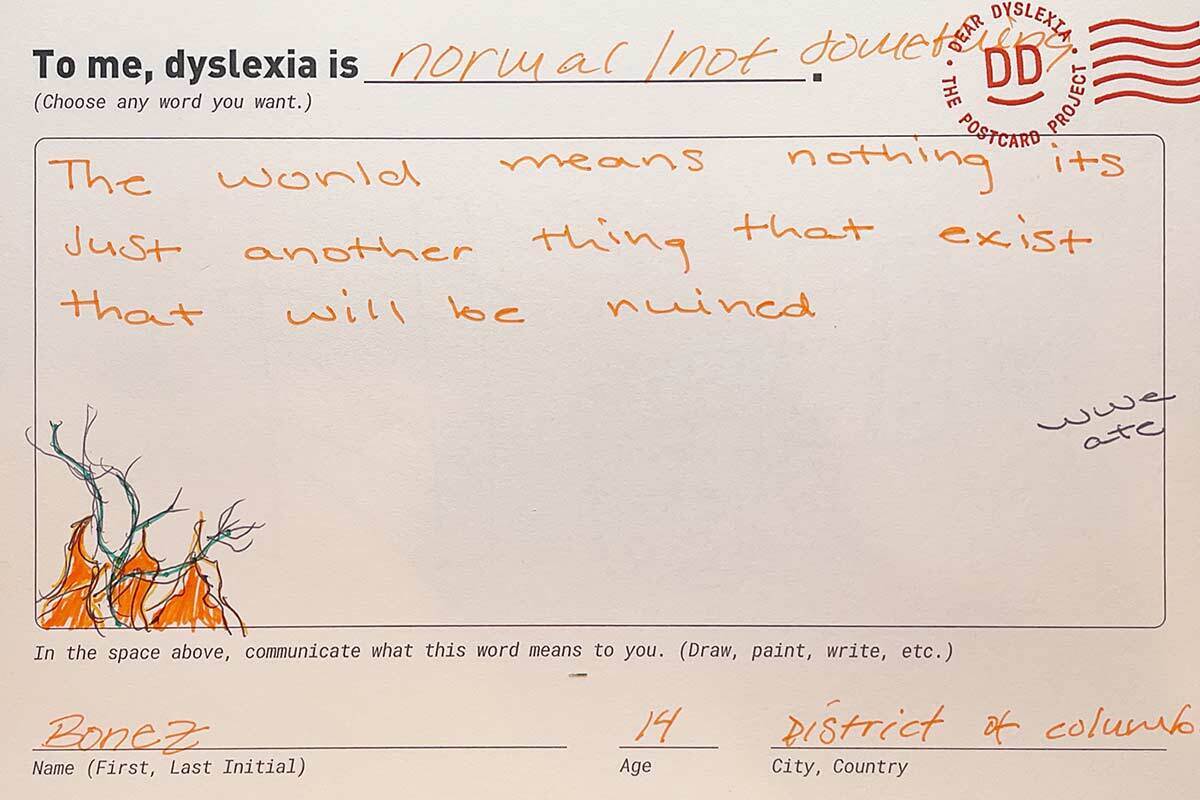 To me, dyslexia is normal / not something.
(Choose any word you want.)
DEAR DYSLEXIA • THE POSTCARD PROJECT •
DD
The world means nothing its
Just another thing that exist
that will be ruined
wwe
atc
In the space above, communicate what this word means to you. (Draw, paint, write, etc.)
Bonez 14 District of columb
Name (First, Last Initial) Age City, Country